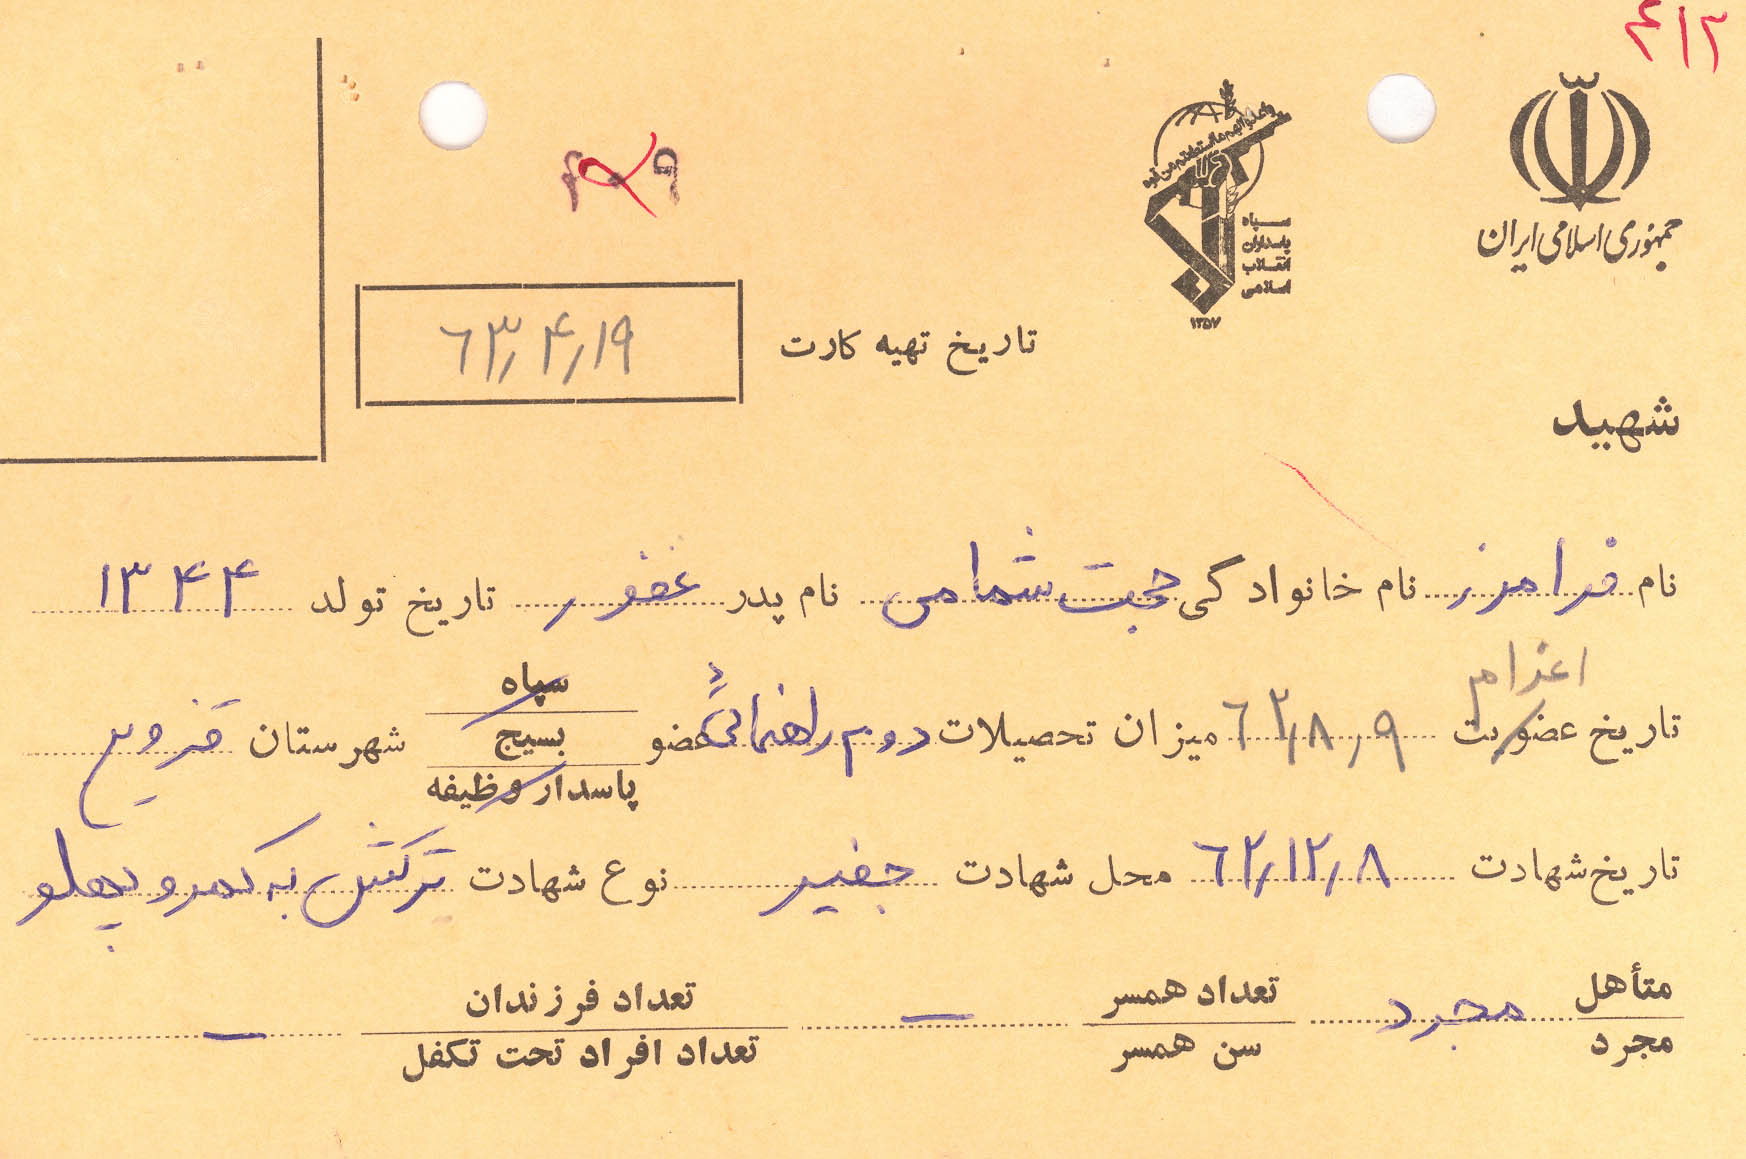 ۶۱۲
جمهوری اسلامی ایران
سپاه
پاسداران
انقلاب
اسلامی
۱۳۵۷
تاریخ تهیه کارت ۶۳٫۴٫۱۹
شهید
نام فرامرز نام خانوادگی حجت شمامی نام پدر غفور تاریخ تولد ۱۳۴۴
اعزام
تاریخ عضویت ۶۲٫۸٫۹ میزان تحصیلات دوم راهنمائی عضو سپاه بسیج پاسدار وظیفه شهرستان قزوین
تاریخ شهادت ۶۲٫۱۲٫۸ محل شهادت جفیر نوع شهادت ترکش به کمر و پهلو
متأهل مجرد مجرد تعداد همسر سن همسر – تعداد فرزندان تعداد افراد تحت تکفل –